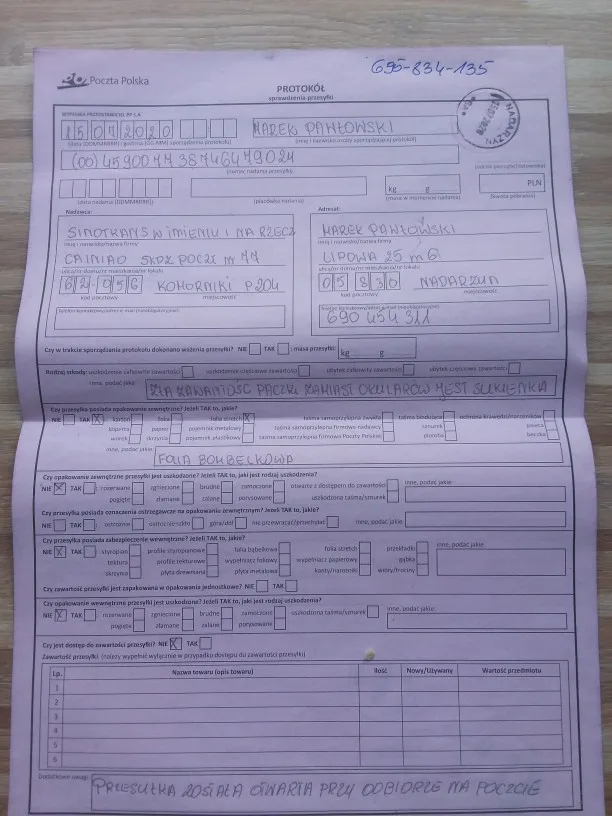 695-834-135
Poczta Polska
PROTOKÓŁ
sprawdzenia przesyłki
NADARZYN
15 07 2020
MAREK PAWŁOWSKI
(data (DDMMRRRR) i godzina (GG:MM) sporządzenia protokołu) (imię i nazwisko osoby sporządzającej protokół)
(00) 459007738746479024
(numer nadania przesyłki)
kg g PLN
(data nadania (DDMMRRRR)) (placówka nadania) (masa w momencie nadania) (kwota pobrania)
Nadawca: Adresat:
SINOTRANS W IMIENIU I NA RZECZ MAREK PAWŁOWSKI
imię i nazwisko/nazwa firmy imię i nazwisko/nazwa firmy
CAINIAO SKRZ POCZT nr 77 LIPOWA 25 m 6
ulica/nr domu/nr mieszkania/nr lokalu ulica/nr domu/nr mieszkania/nr lokalu
62-056 KOMORNIKI P204 05 830 NADARZYN
kod pocztowy miejscowość kod pocztowy miejscowość
690 454 311
Czy w trakcie sporządzania protokołu dokonano ważenia przesyłki? NIE TAK : masa przesyłki: kg g
Rodzaj szkody: uszkodzenie całkowite zawartości uszkodzenie częściowe zawartości ubytek całkowity zawartości ubytek częściowy zawartości
inne, podać jakie: ZŁA ZAWARTOŚĆ PACZKI ZAMIAST OKULARÓW JEST SUKIENKA
Czy przesyłka posiada opakowanie zewnętrzne? Jeżeli TAK to, jakie?
NIE TAK X : karton folia folia stretch X taśma samoprzylepna zwykła taśma bindująca ochrona krawędzi/narożników
koperta papier pojemnik metalowy taśma samoprzylepna firmowa nadawcy sznurek paleta
worek skrzynia pojemnik plastikowy taśma samoprzylepna firmowa Poczty Polskiej plomba beczka
inne, podać jakie: FOLIA BOMBECKOWA
Czy opakowanie zewnętrzne przesyłki jest uszkodzone? Jeżeli TAK to, jaki jest rodzaj uszkodzenia?
NIE X TAK : rozerwane zgniecione brudne zamoczone otwarte z dostępem do zawartości inne, podać jakie
pogięte złamane zalane porysowane uszkodzona taśma/sznurek
Czy przesyłka posiada oznaczenia ostrzegawcze na opakowaniu zewnętrznym? Jeżeli TAK to, jakie?
NIE TAK : ostrożnie ostrożnie szkło góra/dół nie przewracać/przechylać inne, podać jakie
Czy przesyłka posiada zabezpieczenie wewnętrzne? Jeżeli TAK to, jakie?
NIE X TAK : styropian profile styropianowe folia bąbelkowa folia stretch przekładki inne, podać jakie
tektura profile tekturowe wypełniacz foliowy wypełniacz papierowy gąbka
skrzynia płyta drewniana płyta metalowa kanty/narożniki wióry/trociny
Czy zawartość przesyłki jest zapakowana w opakowania jednostkowe? NIE TAK
Czy opakowanie wewnętrzne przesyłki jest uszkodzone? Jeżeli TAK to, jaki jest rodzaj uszkodzenia?
NIE X TAK : rozerwane zgniecione brudne zamoczone uszkodzona taśma/sznurek inne, podać jakie
pogięte złamane zalane porysowane
Czy jest dostęp do zawartości przesyłki? NIE X TAK
Zawartość przesyłki: (należy wypełnić wyłącznie w przypadku dostępu do zawartości przesyłki)
Lp. Nazwa towaru (opis towaru) Ilość Nowy/Używany Wartość przedmiotu
1
2
3
4
5
6
Dodatkowe uwagi: PRZESYŁKA ZOSTAŁA OTWARTA PRZY ODBIORZE NA POCZCIE